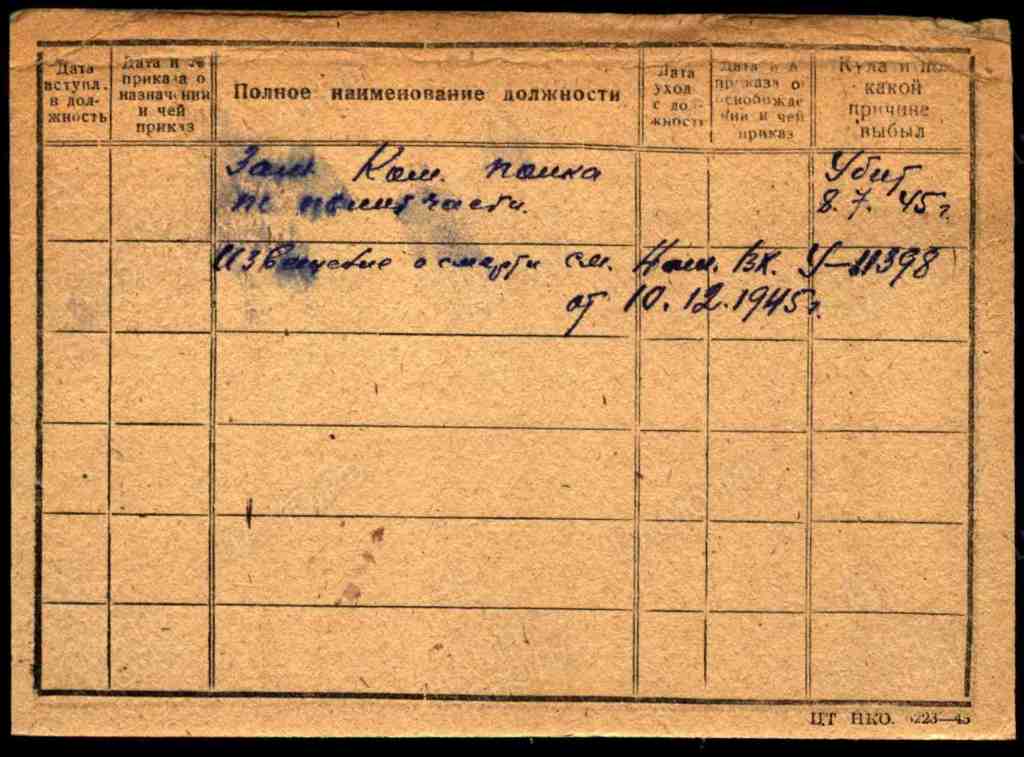 Дата вступл. в дол-жность
Дата и № приказа о назначении и чей приказ
Полное наименование должности
Дата уход с до-жност
Дата и № приказа о освобожде нии и чей приказ
Куда и по какой причине выбыл
Зам. Ком. полка
по политчасти.
Убит
8.7.45г.
Извещение о смерти см. Вх. У-11398
от 10.12.1945г.
ЦТ НКО. 223—45